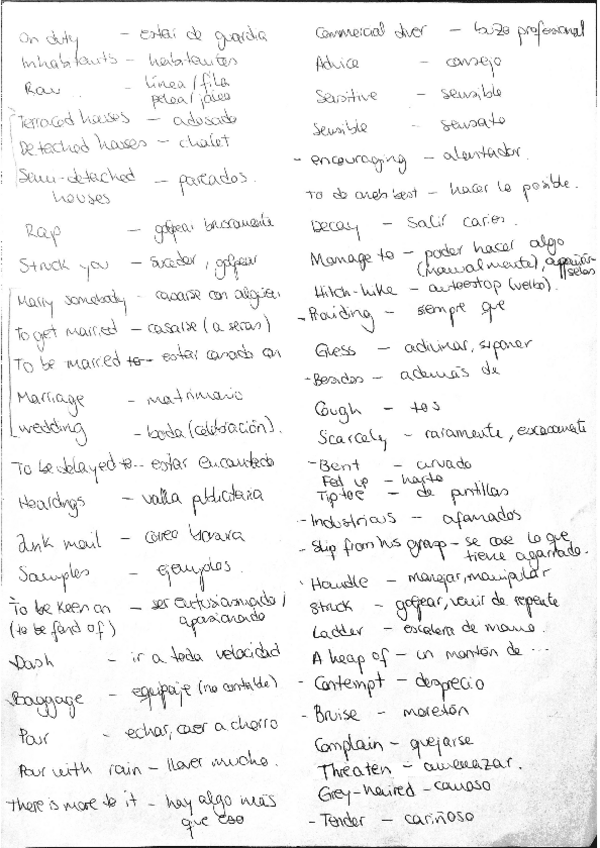 On duty - estar de guardia
Inhabitants - habitantes
Raw - línea / fila
pelea / jaleo
Terraced houses - adosado
Detached houses - chalet
Semi-detached - pareados.
houses
Rap - golpear bruscamente
Struck you - suceder, golpear
Marry somebody - casarse con alguien
To get married - casarse (a secas)
To be married to - estar casado con
Marriage - matrimonio
Wedding - boda (celebración).
To be delayed to - estar
Heardings - valla publicitaria
Junk mail - correo basura
Samples - ejemplos.
To be keen on - ser entusiasmado /
(to be fond of) apasionado
Dash - ir a toda velocidad
Baggage - equipaje (no contable)
Pour - echar, caer a chorro
Pour with rain - llover mucho.
There is more to it - hay algo más
que eso
Commercial diver - buzo profesional
Advice - consejo
Sensitive - sensible
Sensible - sensato
- encouraging - alentador.
To do one's best - hacer lo posible.
Decay - salir caries.
Manage to - poder hacer algo
(manualmente),
Hitch-hike - autoestop (verbo).
- Providing - siempre que
Guess - adivinar, suponer
- Besides - además de
Cough - tos
Scarcely - raramente, escasamente
- Bent - curvado
Fed up - harto
Tiptoe - de puntillas
- Industrious - afanados
- Slip from his grasp - se cae lo que
tiene agarrado.
Handle - manejar, manipular
Struck - golpear, venir de repente
Ladder - escalera de mano.
A heap of - un montón de ...
- Contempt - desprecio
- Bruise - moretón
Complain - quejarse
Threaten - amenazar.
Grey-haired - canoso
- Tender - cariñoso